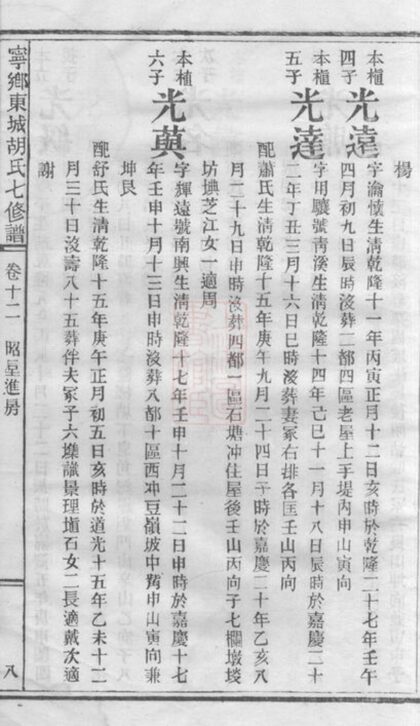 楊
本樞四子 光遠 字瀹懷生清乾隆十一年丙寅正月十二日亥時於乾隆二十七年壬午
四月初九日辰時沒葬二都四區老屋上手堤內申山寅向
本樞五子 光達 字用驤號靑溪生清乾隆十四年己巳十一月十八日辰時於嘉慶二十
二年丁丑三月十六日巳時沒葬妻冢右排各匡壬山丙向
配蕭氏生清乾隆十五年庚午九月二十四日干時於嘉慶二十年乙亥八
月二十九日申時沒葬四都一區石塘冲住屋後壬山丙向子七欄墩埮
坊㙉芝江女一適周
本植六子 光萸 字輝遠號南興生清乾隆十七年壬申十月二十二日申時於嘉慶十七
年壬申十月十三日申時沒葬八都十區西冲豆嶺坡中聶申山寅向兼
坤艮
配舒氏生清乾隆十五年庚午正月初五日亥時於道光十五年乙未十二
月三十日沒壽八十五葬伴夫冢子六㙫識景理塤石女二長適戴次適
謝
寧鄉東城胡氏七修譜 卷十二 昭星進房 八